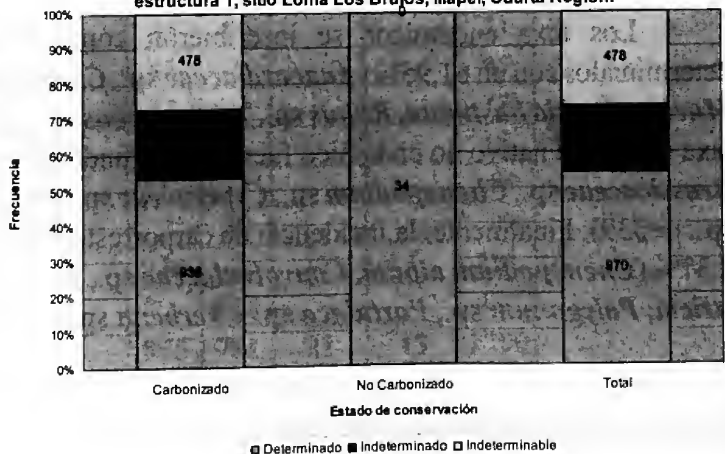 estructura 1, sitio Loma Los Brujos, Illapel, Cuarta Regió...
0
100%
90%
80%
70%
60%
50%
40%
30%
20%
10%
0%
Frecuencia
478
936
34
478
970
Carbonizado
No Carbonizado
Total
Estado de conservación
Determinado Indeterminado Indeterminable